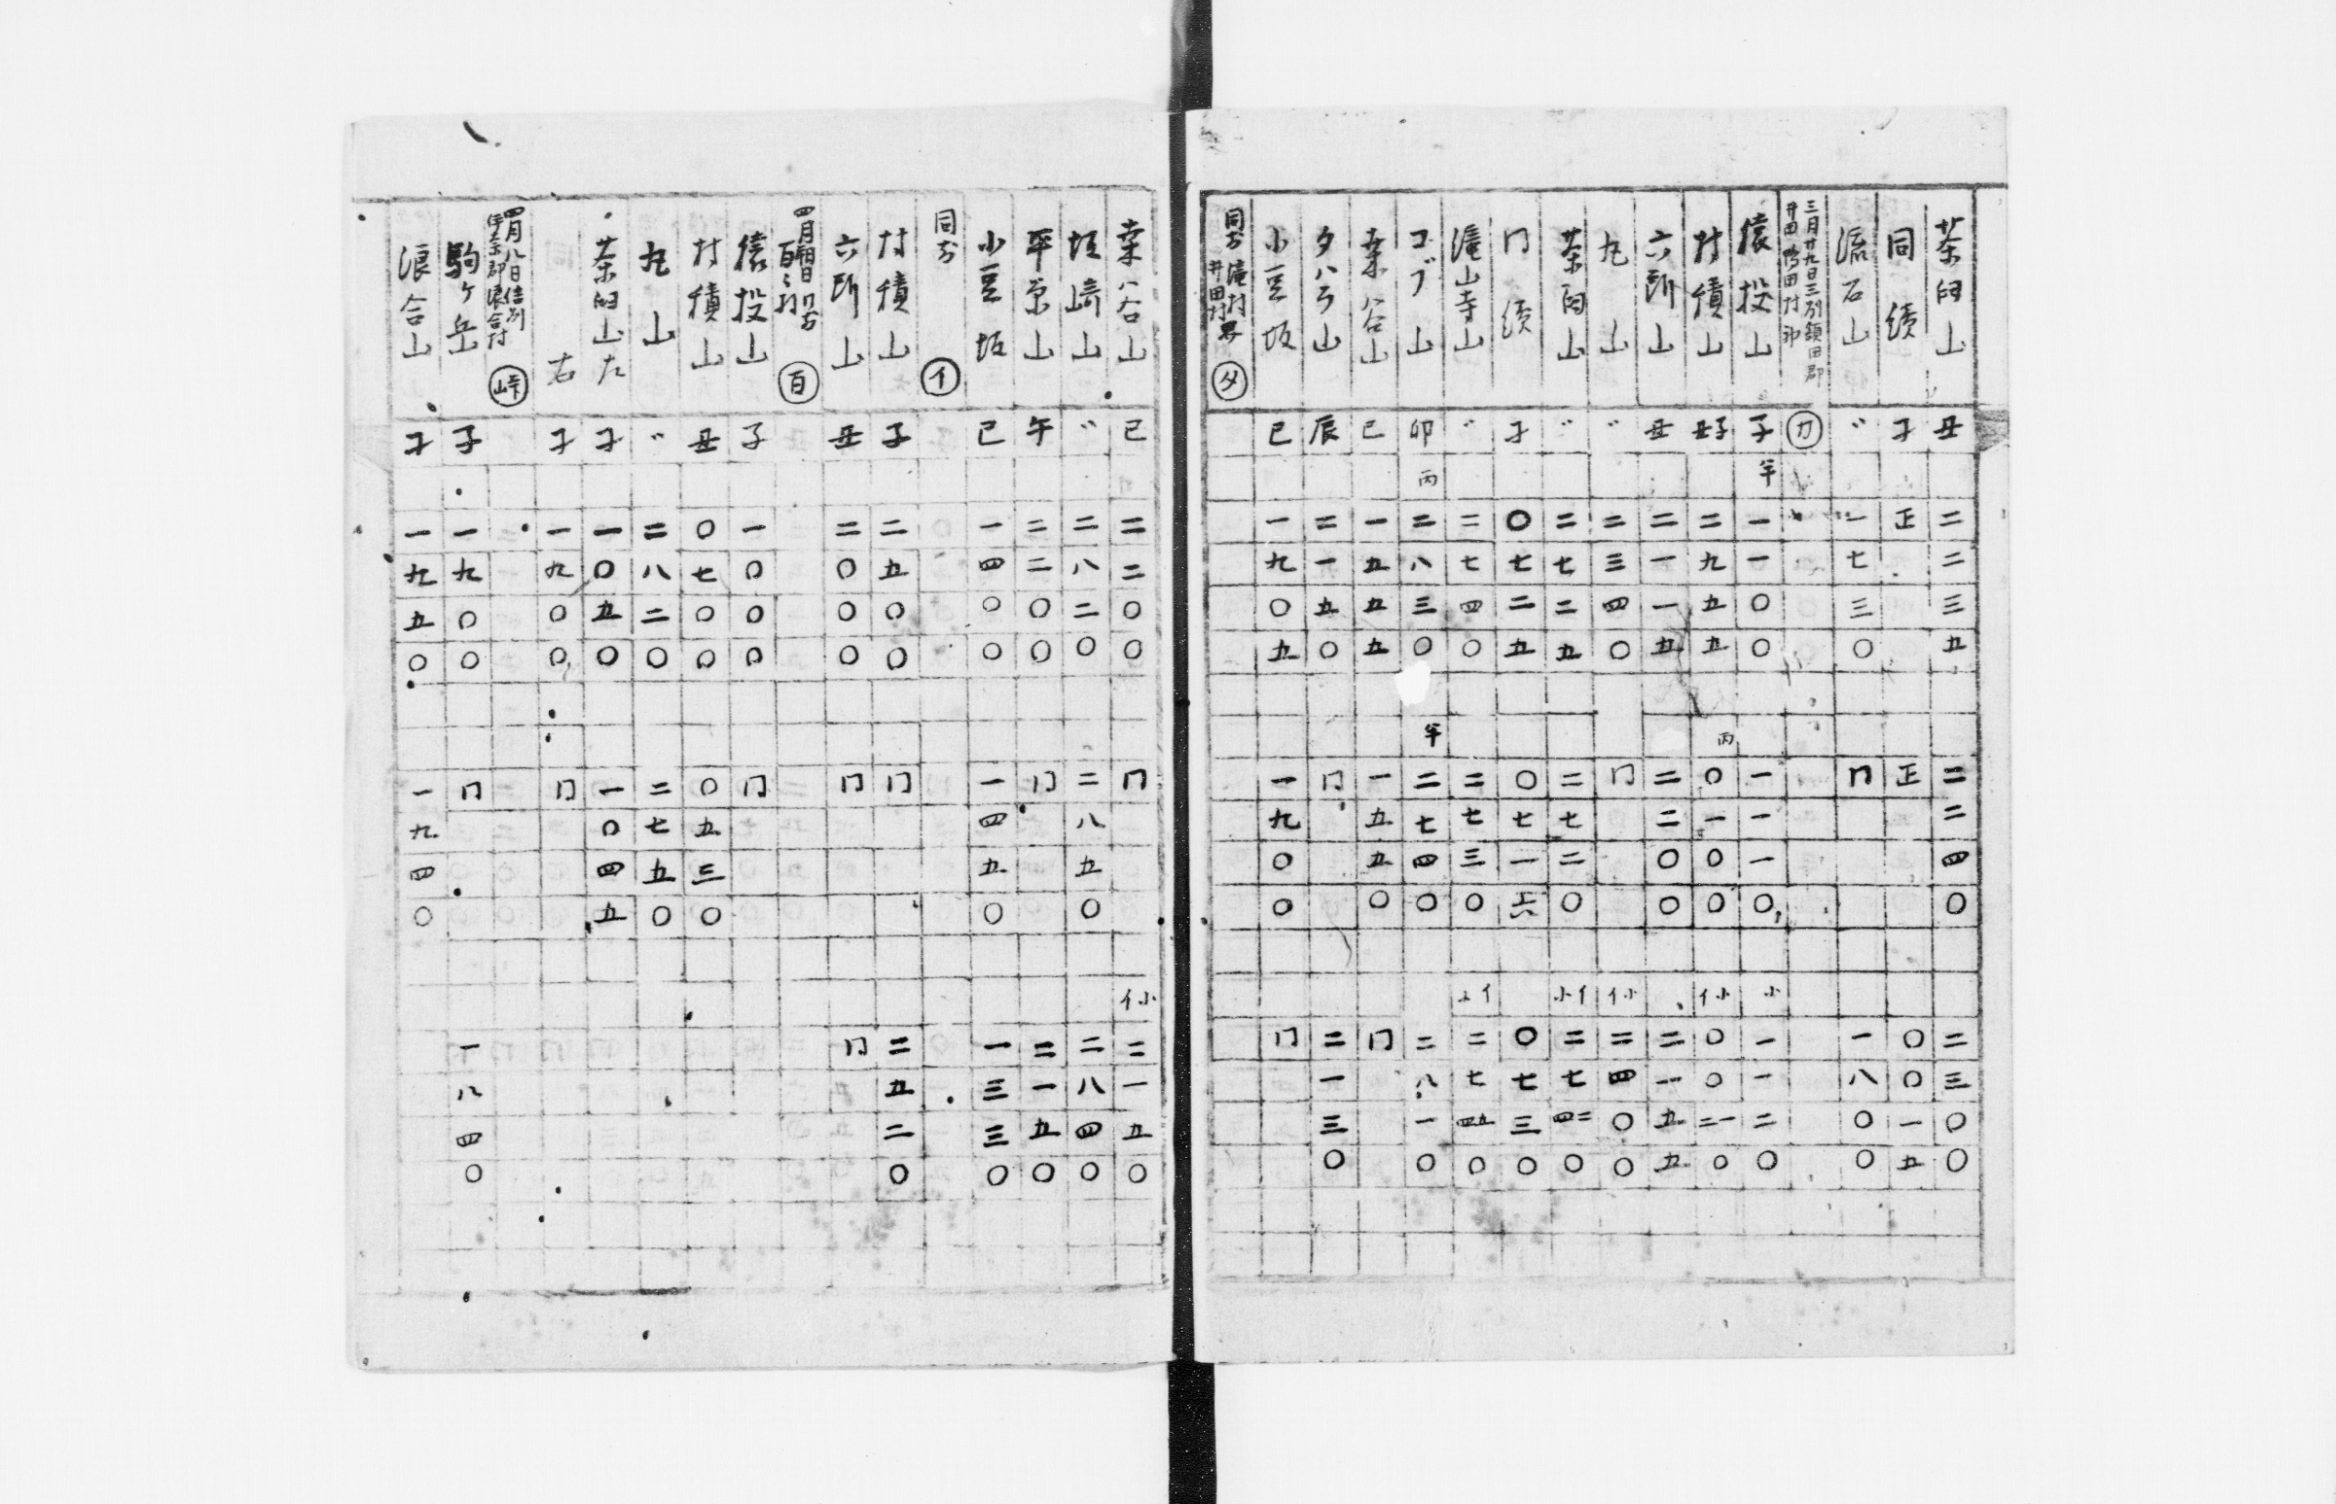 茶臼山 丑 二二三五 二二四〇 二三〇〇
同 續 子 正 正 〇〇一五
流石山 〃 一七三〇 冂 一八〇〇
三月廿九日三刕額田郡
井田 鴨田村 ㋕
猿投山 子 半 一一〇〇 一一一〇 小 一一二〇
村積山 子丑 二九五五 丙 〇一〇〇 小イ 〇〇一二〇
六所山 丑 二一一五 二二〇〇 二一五五
丸山 〃 二三四〇 冂 小イ 二四〇〇
茶臼山 〃 二七二五 二七二〇 小イ 二七二四〇
冂 續 子 〇七二五 〇七一六 〇七三〇
滝山寺山 〃 二七四〇 二七三〇 イ 二七五四〇
コブ山 卯 丙 二八三〇 半 二七四〇 二八一〇
桒谷山 巳 一五五五 一五五〇 冂
タハラ山 辰 二一五〇 冂 二一三〇
小豆坂 巳 一九〇五 一九〇〇 冂
同方 滝村
井田村 界 ㋟
桒谷山 巳 二二〇〇 冂 小イ 二一五〇
垣崎山 〃 二八二〇 二八五〇 二八四〇
平京山 午 二二〇〇 冂 二一五〇
小豆坂 巳 一四〇〇 一四五〇 一三三〇
同方 ㋑
村積山 子 二五〇〇 冂 二五二〇
六所山 丑 二〇〇〇 冂 冂
四月朔日 冂方
百々村 百
猿投山 子 一〇〇〇 冂
村積山 丑 〇七〇〇 〇五三〇
丸山 〃 二八二〇 二七五〇
茶臼山 左 子 一〇五〇 一〇四五
右 子 一九〇〇 冂
四月八日信刕
伊奈郡浪合村 峠
駒ヶ岳 子 一九〇〇 冂 一八四〇
浪合山 子 一九五〇 一九四〇